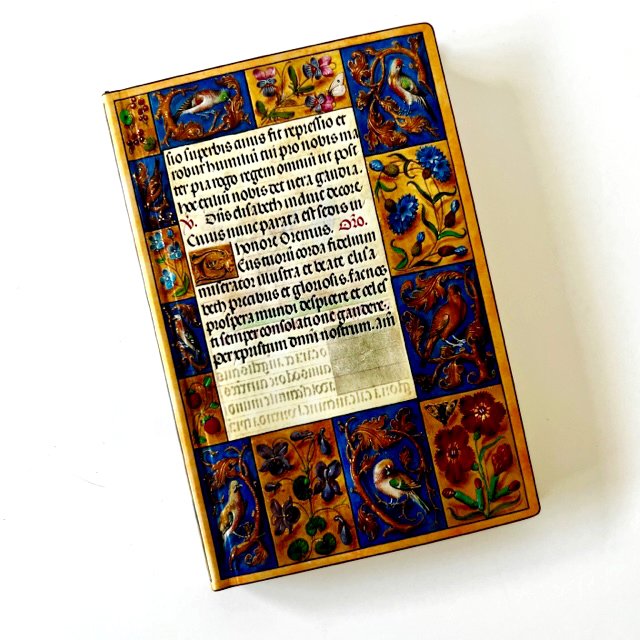 sio superbis cuius fit repressio et
robur humiliu tu pio nobis ma
ter pia rogo regem omniu ut post
hoc exiliu nobis det vera gaudia.
V. elisabeth decore
Cuius nunc parata est sedis in
honore Oremus. Oro.
tuorum corda fidelium
miserator illustra et beate elisa
beth precibus et gloriosis. fac nos
prospera mundi despicere et celes
ti semper consolatione gaudere.
per xpristum dnm nostrum. am